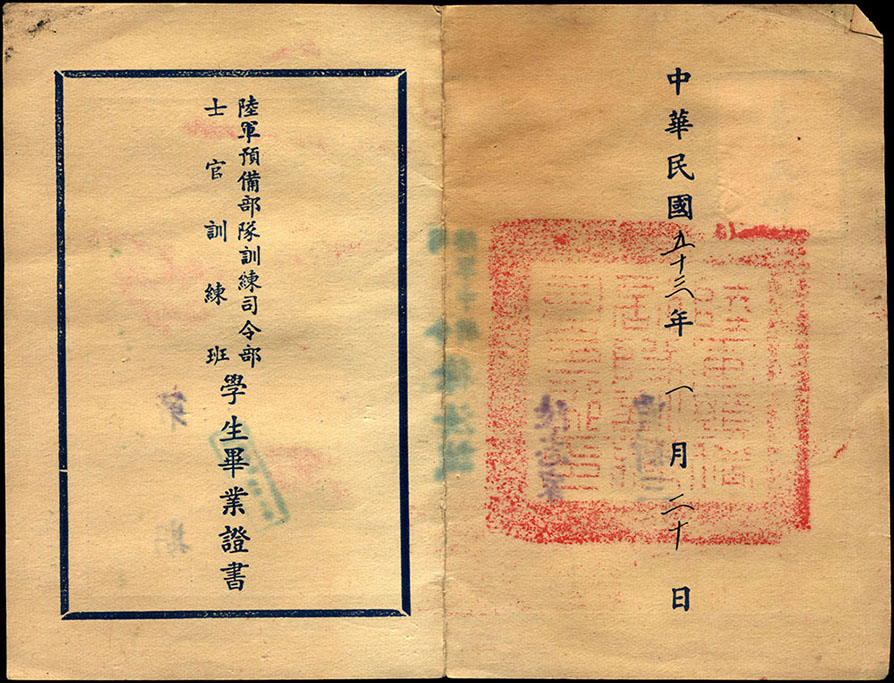 中華民國五十三年一月二十日
陸軍預備部隊訓練司令部
士官訓練班
學生畢業證書